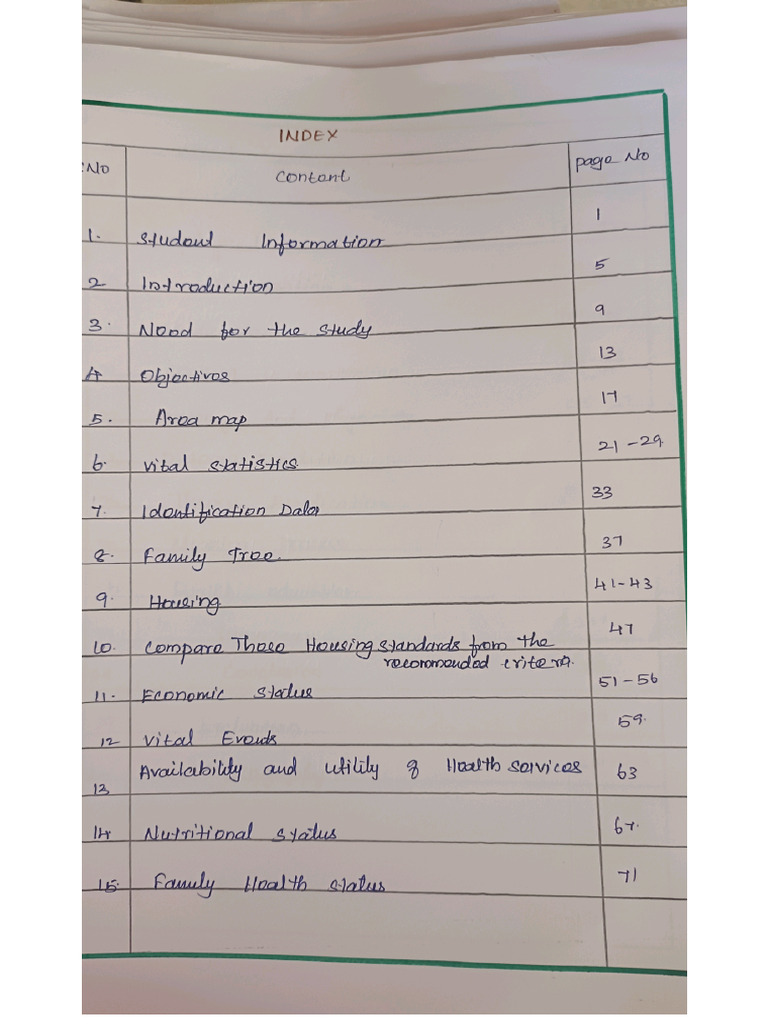 INDEX
:No Content page No
1. Student Information 1
2 Introduction 5
3. Need for the study 9
4 Objectives 13
5. Area map 17
6. Vital statistics 21-29
7. Identification Data 33
8. Family Tree. 37
9. Housing 41-43
10. Compare These Housing standards from the 47
recommended criteria.
11. Economic status 51-56
12 Vital Events 59.
13 Availability and utility of Health services 63
14 Nutritional status 67.
15. Family Health status 71